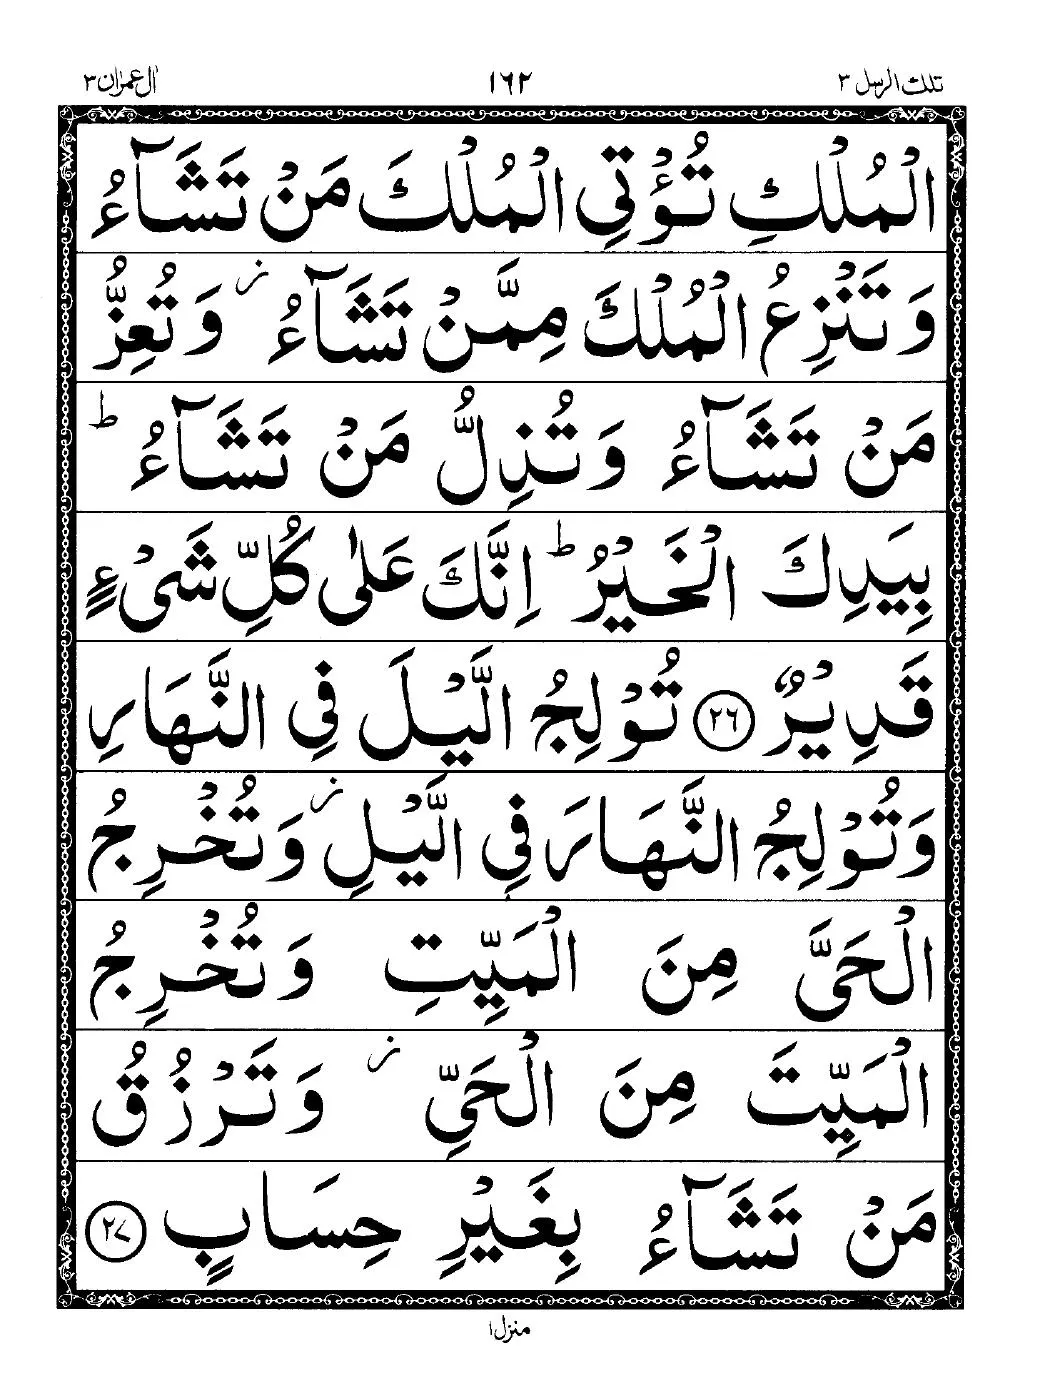 تلك الرسل ٣
١٦٢
اٰل عمرٰن ٣
الْمُلْكِ تُؤْتِي الْمُلْكَ مَنْ تَشَآءُ
وَتَنْزِعُ الْمُلْكَ مِمَّنْ تَشَآءُ ز وَتُعِزُّ
مَنْ تَشَآءُ وَتُذِلُّ مَنْ تَشَآءُ ط
بِيَدِكَ الْخَيْرُ ط اِنَّكَ عَلٰى كُلِّ شَىْءٍ
قَدِيْرٌ ٢٦ تُوْلِجُ الَّيْلَ فِي النَّهَارِ
وَتُوْلِجُ النَّهَارَ فِي الَّيْلِ ز وَتُخْرِجُ
الْحَىَّ مِنَ الْمَيِّتِ وَتُخْرِجُ
الْمَيِّتَ مِنَ الْحَىِّ ز وَتَرْزُقُ
مَنْ تَشَآءُ بِغَيْرِ حِسَابٍ ٢٧
منزل ١